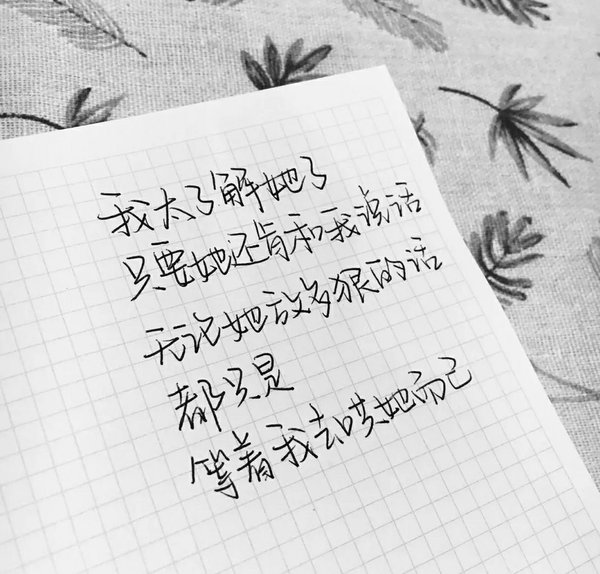 我太了解她了
只要她还肯和我说话
无论她放多狠的话
都只是
等着我去哄她而已